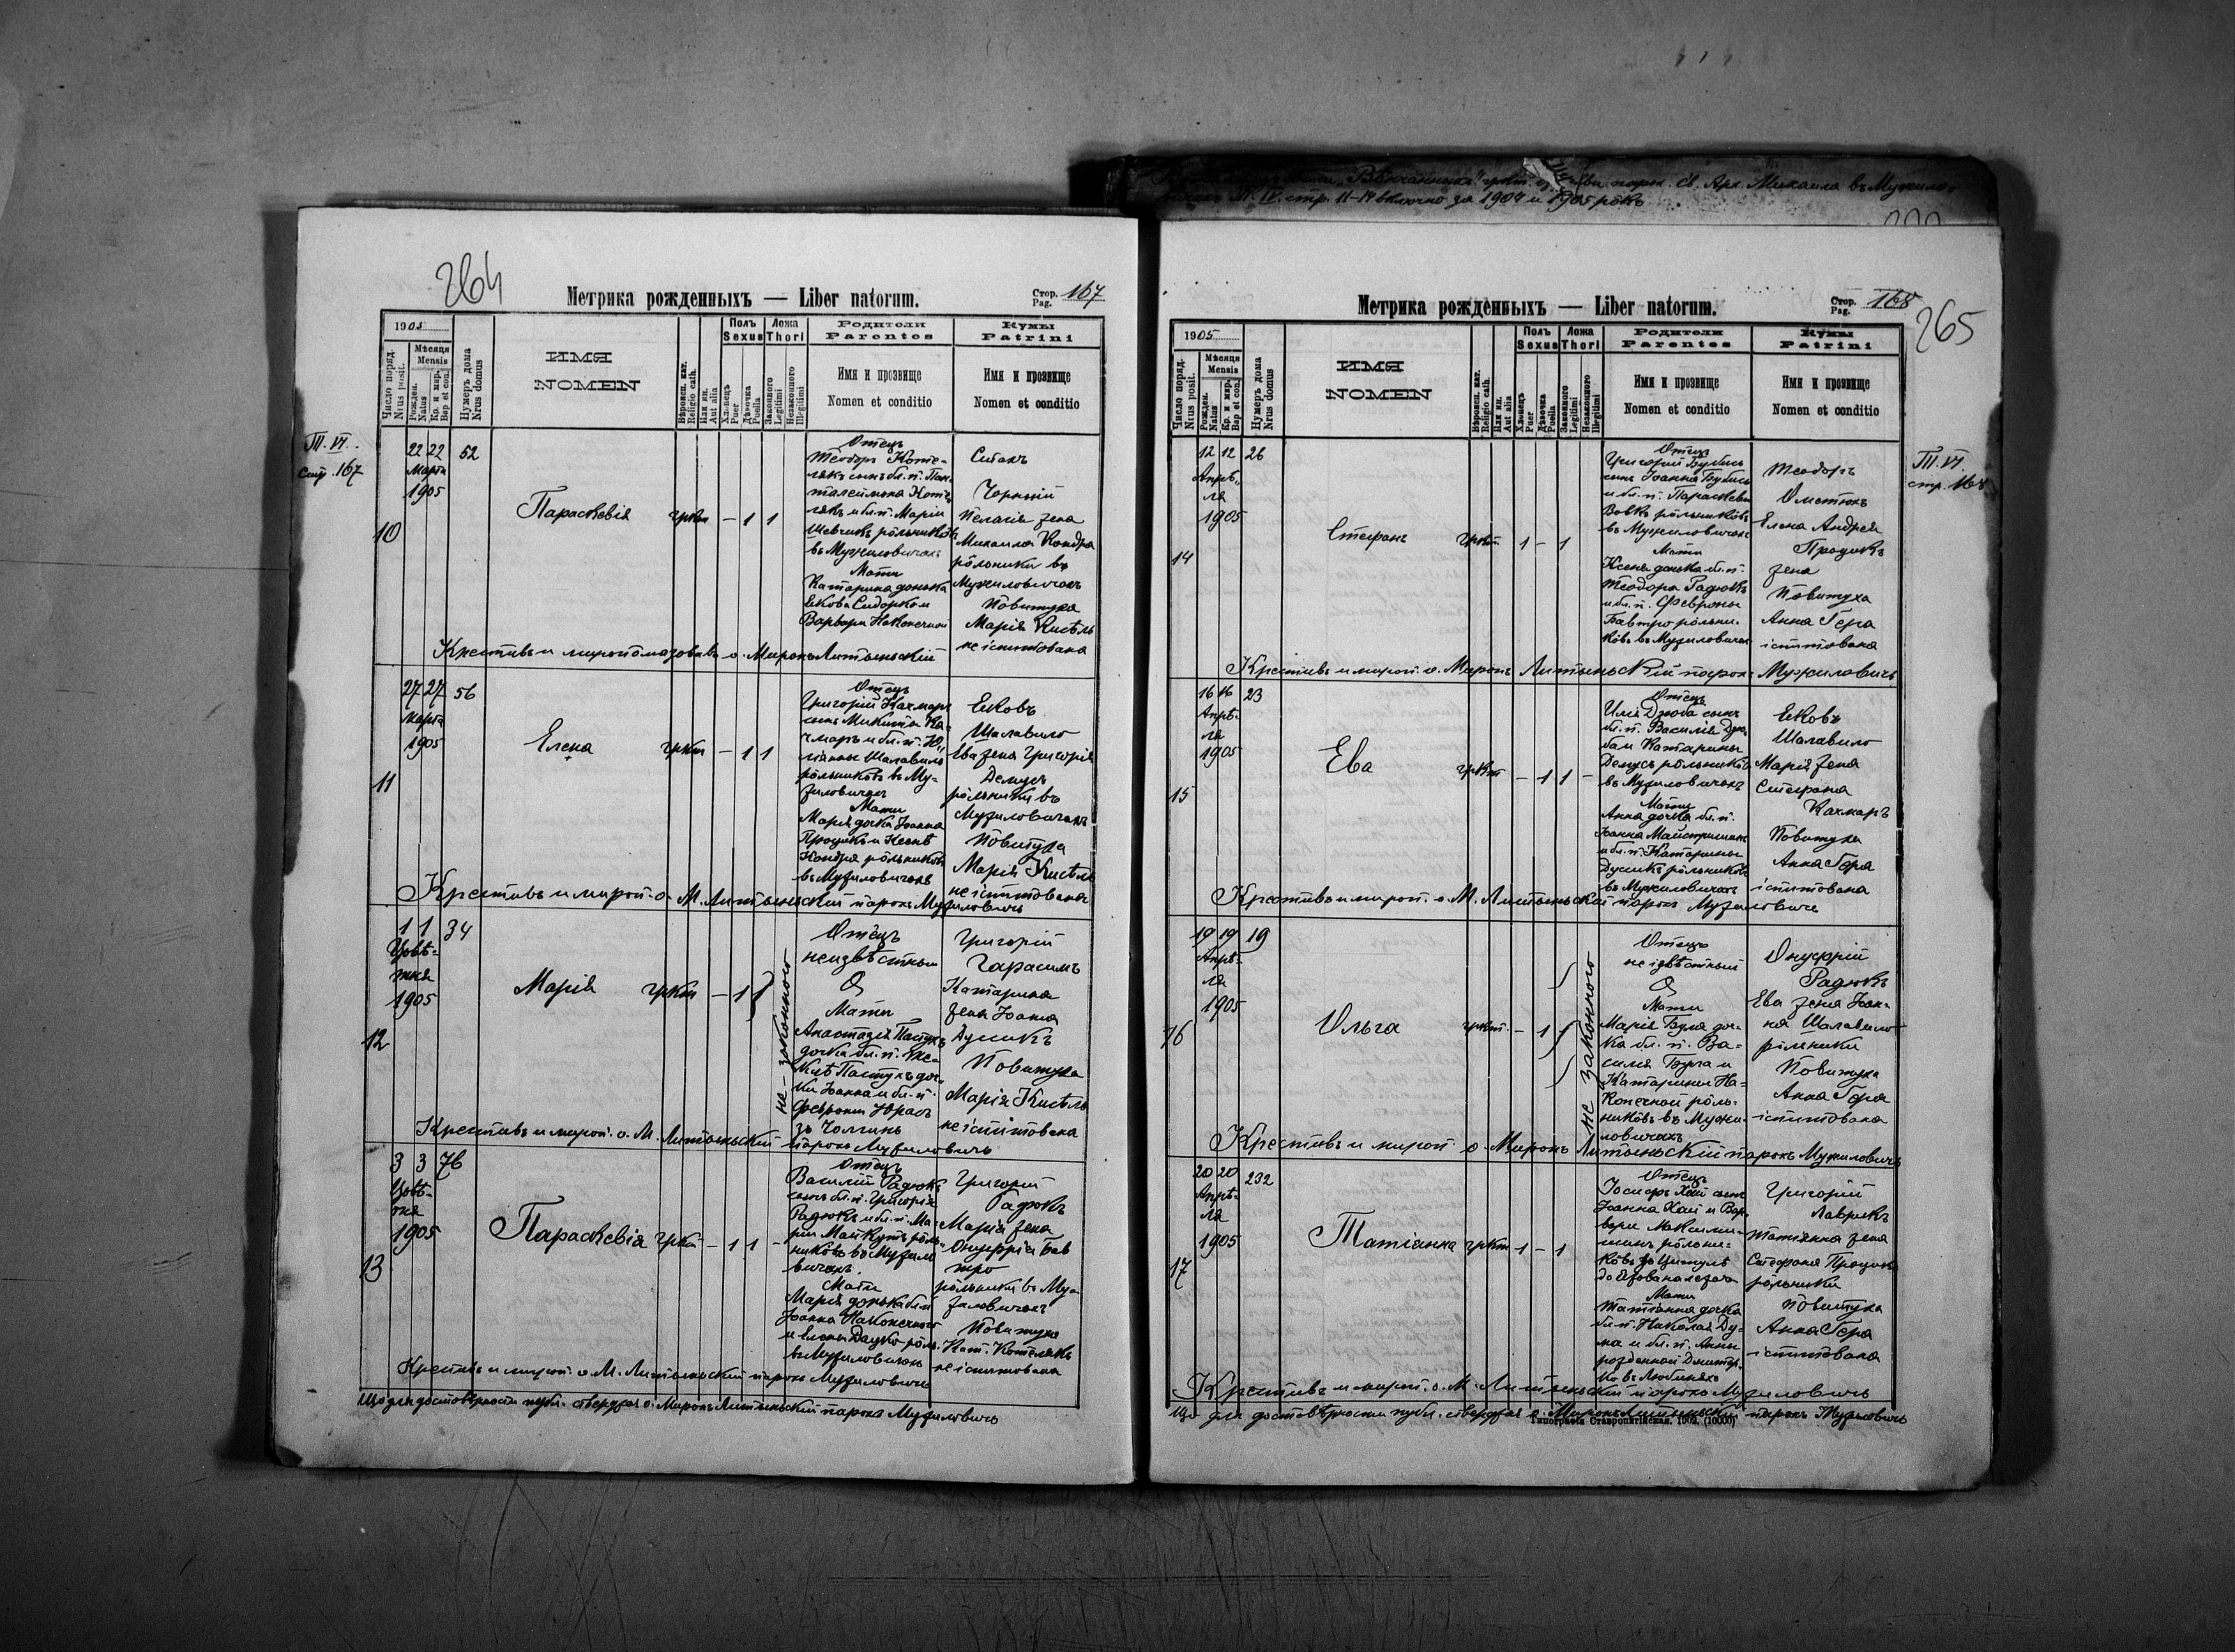 264
Метрика рожденныхъ — Liber natorum.
Стор. 167
Pag.
1905
Мѣсяця
Mensis
Число поряд.
Nrus posit.
Рожден.
Natus
Кр. и мир.
Bap et con.
Нумеръ дома
Nrus domus
ИМЯ
NOMEN
Вѣроисп. кат.
Religio cath.
Или ин.
Aut alia
Полъ
Sexus
Хлопецъ
Puer
Дѣвочка
Puella
Ложа
Thori
Законного
Legitimi
Незаконного
Illegitimi
Родители
Parentes
Имя и прозвище
Nomen et conditio
Кумы
Patrini
Имя и прозвище
Nomen et conditio
Т. VI.
стр. 167
10
22 22
Марта
1905
52
Параскевія
гркт
– 1 1
Отецъ
Теодоръ Коте-
лякъ сынъ бл. п. Пан
талеимона Коте
лякъ и бл. п. Маріи
Шевчикъ рôльникôвъ
въ Мужиловичахъ
Мати
Катарина донька
Якова Сидорком
Варвары Наконечной
Чорный
Пелагія зена
Михаила Кондра
рôльники въ
Мужиловичахъ
Повитуха
Марія Кисѣль
не іспитована
Крестивъ и миропомазовавъ о. Миронъ Литыньскій
11
27 27
Марта
1905
56
Елена
гркт
– 1 1
Отецъ
Григорій Качмаръ
сынъ Микиты Ка-
чмаръ и бл. п. Ю
ліанны Шалавило
рôльникôвъ въ Му-
зиловичах
Мати
Марія дочка Іоанна
Процикъ и Ксенѣ
Кондра рôльникôвъ
въ Музиловичахъ
Яковъ
Шалавило
Ева зена Григорія
Демусь
рôльники въ
Музиловичахъ
Повитуха
Марія Кисѣль
не іспитована
Крестивъ и мироп. о. М. Литыньскій парохъ Музиловичь
12
1 1
Цвѣ-
тня
1905
34
Марія
гркт
– 1
не-законного
Отецъ
неизвѣстный
Мати
Анастазія Пастухъ
дочка бл. п. Яко-
Пастухъ доч
ки Іоанна и бл. п.
Февроніи Юрась
зъ Чолгинь
Григорій
Гарасимъ
Катарина
зена Іоанна
Дусикъ
Повитуха
Марія Кисѣль
не іспитована
Крестивъ и мироп. о. М. Литыньскій парохъ Музиловичь
13
3 3
Цвѣ-
тня
1905
76
Параскевія
гркт
– 1 1 –
Отецъ
Василій Радюкъ
сынъ бл. п. Григорія
Радюкъ и бл. п. Ма-
ріи Майкутъ рôль
никôвъ въ Музило
вичахъ.
Мати
Марія донька бл. п
Іоанна Наконечного
и Елены Дацко рôль.
въ Музиловичахъ
Григорій
Радюкъ
Марія зена
Онуфрія Бав
тро
рôльники въ Му-
зиловичахъ
Повитуха
Кат. Котелякъ
не іспитована
Крестивъ и мироп. о. М. Литыньскій парохъ Музиловичь
Що для достовѣрности публ. ствердзая о. Миронъ Литыньскій парохъ Музиловичь
265
Метрика рожденныхъ — Liber natorum.
Стор. 168
Pag.
1905
Мѣсяця
Mensis
Число поряд.
Nrus posit.
Рожден.
Natus
Кр. и мир.
Bap et con.
Нумеръ дома
Nrus domus
ИМЯ
NOMEN
Вѣроисп. кат.
Religio cath.
Или ин.
Aut alia
Полъ
Sexus
Хлопецъ
Puer
Дѣвочка
Puella
Ложа
Thori
Законного
Legitimi
Незаконного
Illegitimi
Родители
Parentes
Имя и прозвище
Nomen et conditio
Кумы
Patrini
Имя и прозвище
Nomen et conditio
Т. VI.
стр. 168
14
12 12
Апрѣ-
ля
1905
26
Стефанъ
гркт
1 – 1
Отецъ
Григорій Бубись
сынъ Іоанна Бубись
и бл. п. Параскевіи
Вовкъ рôльникôвъ
въ Мужиловичахъ
Мати
Ксеня донька бл. п.
Теодора Радюкъ
и бл. п. Февроны
Бавтро рôльни-
кôвъ въ Музиловичах
Теодоръ
Елена Андрея
Процикъ
зена
Повитуха
Анна Гера
іспитована
Крестивъ и мироп. о. Миронъ Литыньскій парохъ Мужиловичь
15
16 16
Апрѣ-
ля
1905
23
Ева
гркт
– 1 1 –
Отецъ
Илія Дзюба сынъ
бл. п. Василія Дзю
баи Катарины
Демусь рôльникôвъ
въ Музиловичахъ
Мати
Анна дочка бл. п.
Іоанна
и бл. п. Катарины
Дусикъ рôльникôвъ
въ Мужиловичахъ
Яковъ
Шалавило
Марія зена
Стефана
Качмаръ
Повитуха
Анна Гера
іспитована
Крестивъ и мироп. о. М. Литыньскій парохъ Музиловичь
16
19 19
Апрѣ-
ля
1905
19
Ольга
гркт.
– 1
не законного
Отецъ
не ізвѣстный
Мати
Марія Буга доч-
ка бл. п. Ва-
силія Буга и
Катарины На-
конечной рôль-
никôвъ въ Мужи-
ловичахъ
Онуфрій
Радюкъ
Ева зена Іоан-
на Шалавило
рôльники
Повитуха
Анна Гера
іспитована
Крестивъ и мироп о. Миронъ Литыньскій парохъ Мужиловичь
17
20 20
Апрѣ-
ля
1905
232
Татіанна
гркт
1 – 1
Отецъ
Іосифъ Хай сынъ
Іоанна Хай и Вар-
вары Максими-
рôльни-
кôвъ
Мати
Татіанна дочка
бл. п. Николая Ду-
ма и бл. п. Анны
розденной Дмитер-
ко въ Любиняхъ
Григорій
Лаврикъ
Татіянна зена
Стефана Процикъ
рôльники
Повитуха
Анна Гера
іспитована
Крестивъ и мироп. о. М. Литыньскій парохъ Музиловичь
Що для достовѣрности публ. ствердзая о. Миронъ Литыньскій парохъ Музиловичь
Типографія Ставропигійская. (10000)
"Вѣнчанныхъ" гркт. парох. Св. Арх. Михаила въ Мужило-
Т. IV. стр. 11-14 включно за 1904 и 1905 рôкъ